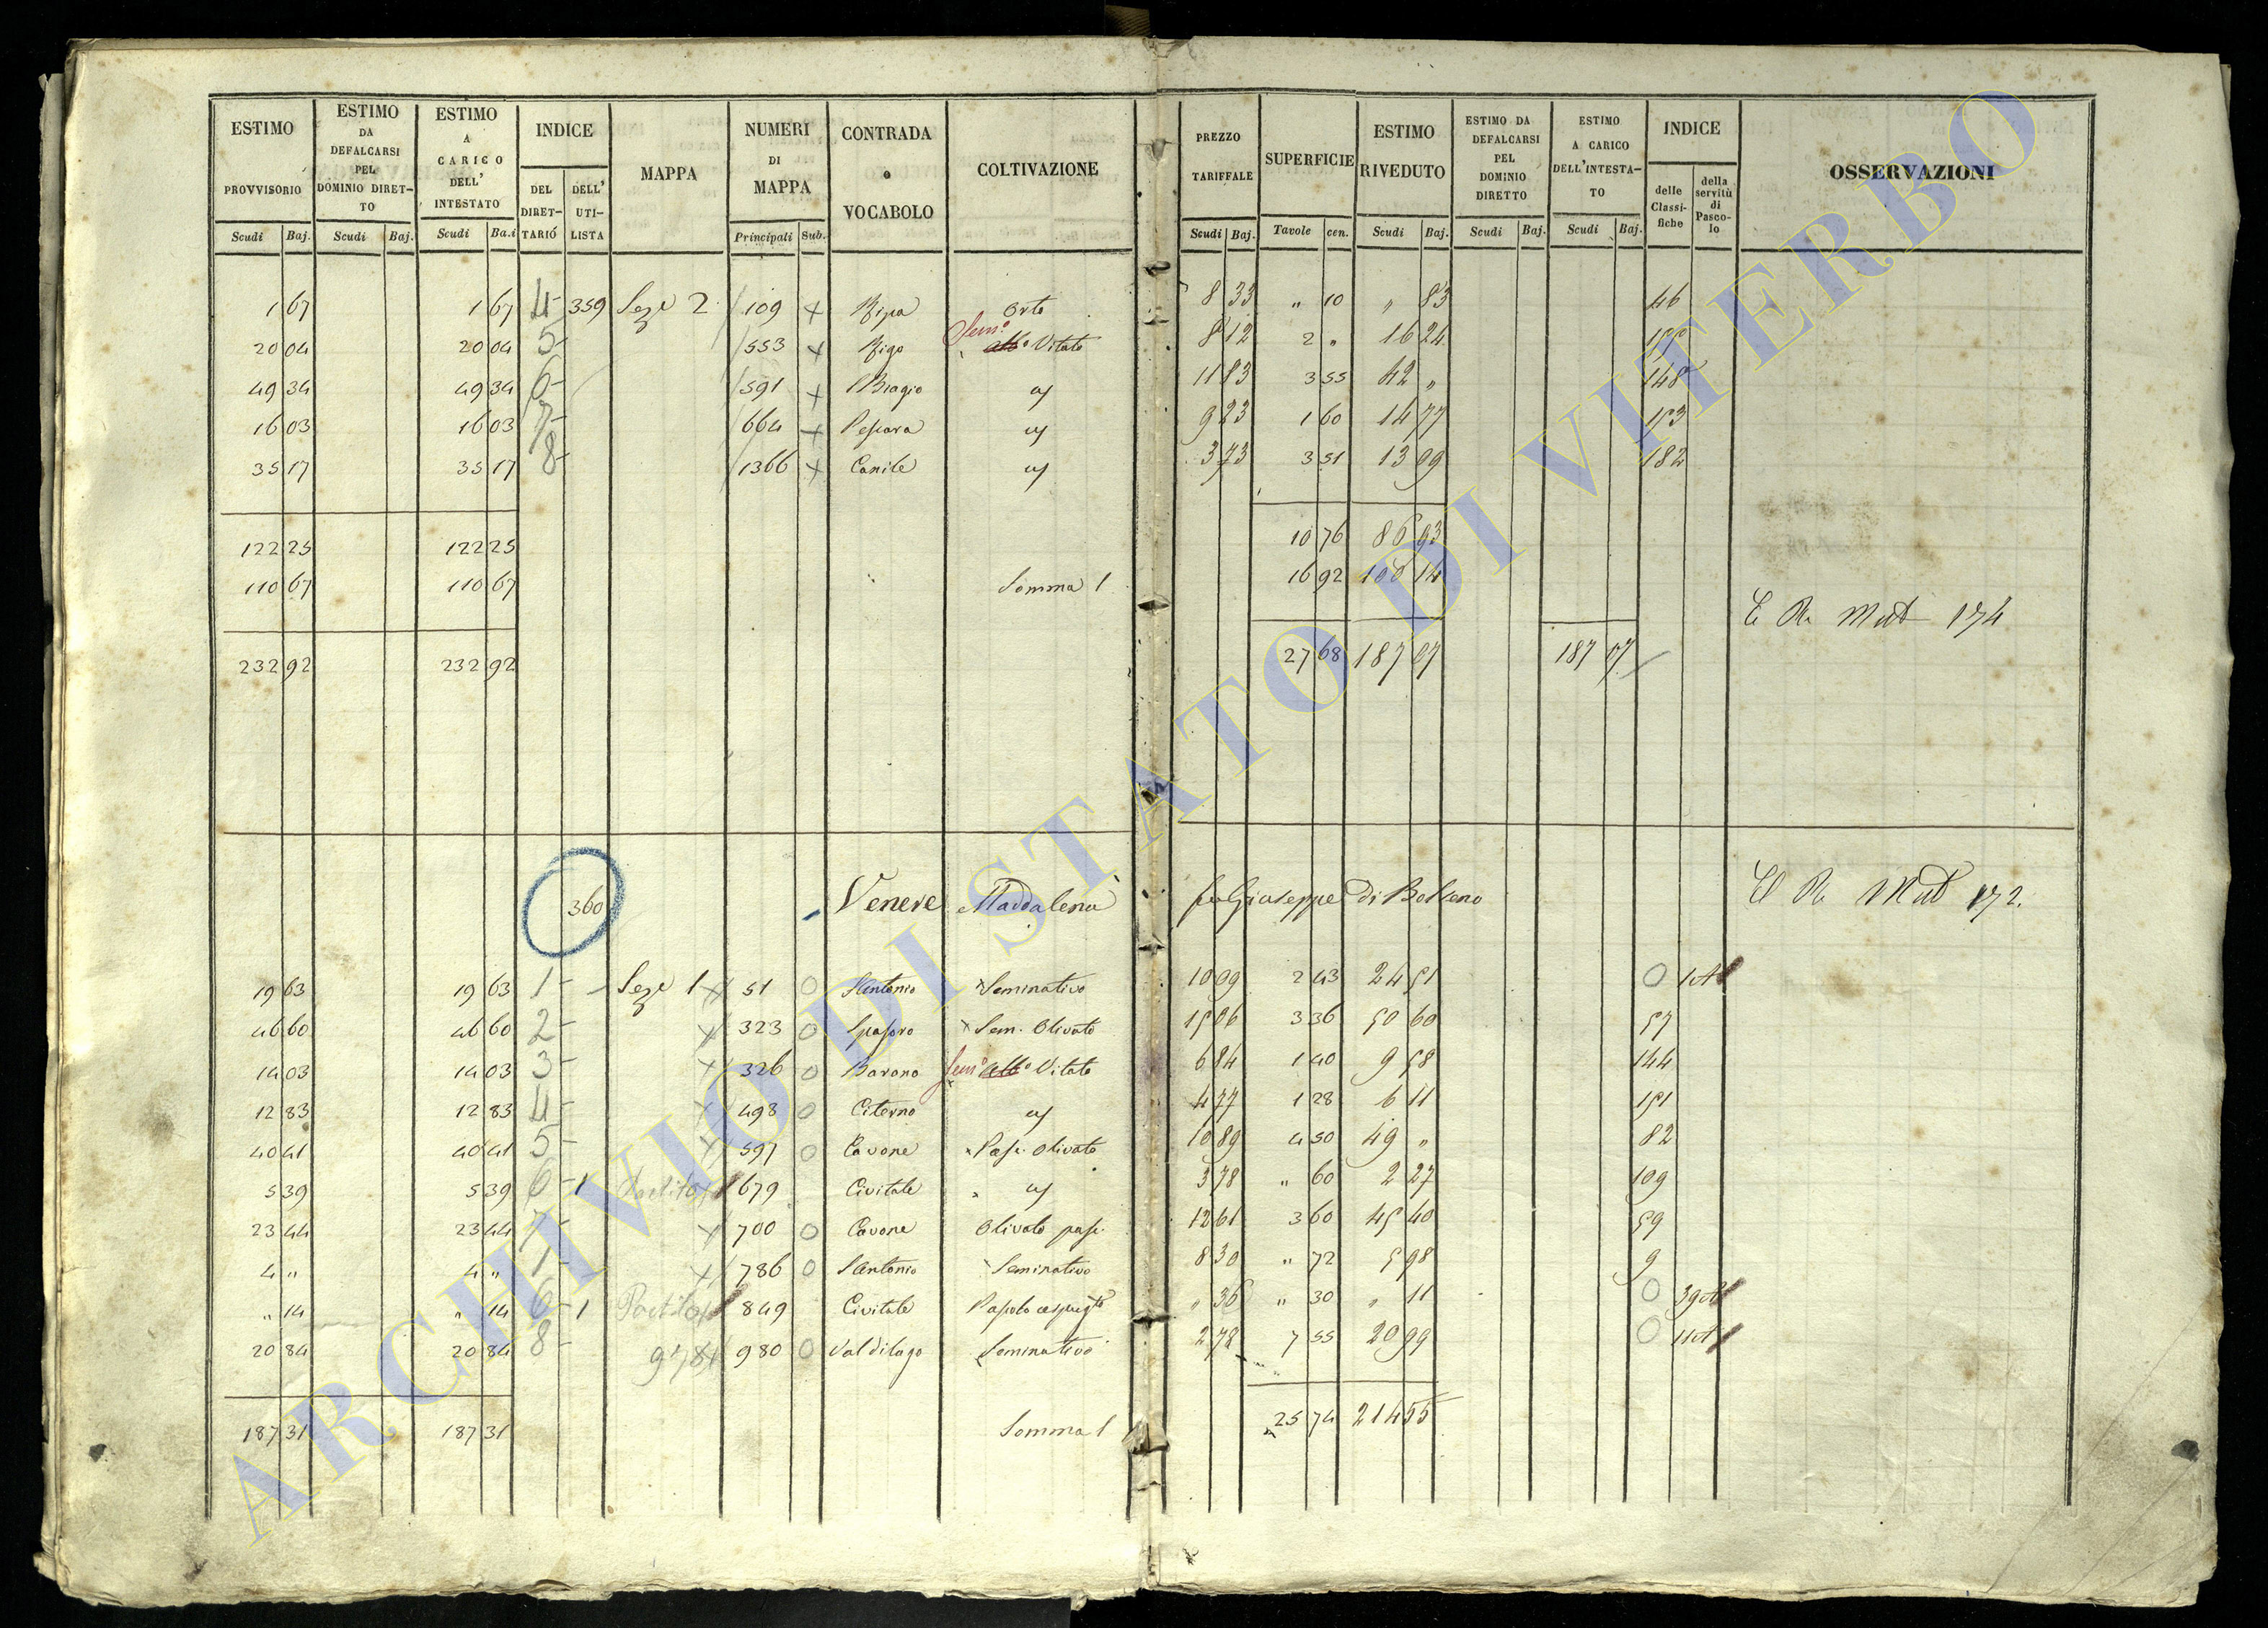 ESTIMO PROVVISORIO Scudi Baj.
ESTIMO DA DEFALCARSI PEL DOMINIO DIRET-TO Scudi Baj.
ESTIMO A CARICO DELL' INTESTATO Scudi Ba.i
INDICE DEL DIRET-TARIÓ DELL' UTI-LISTA
MAPPA
NUMERI DI MAPPA Principali Sub.
CONTRADA o VOCABOLO
COLTIVAZIONE
PREZZO TARIFFALE Scudi Baj.
SUPERFICIE Tavole cen.
ESTIMO RIVEDUTO Scudi Baj.
ESTIMO DA DEFALCARSI PEL DOMINIO DIRETTO Scudi Baj.
ESTIMO A CARICO DELL'INTESTA-TO Scudi Baj.
INDICE delle Classi-fiche della servitù di Pasco-lo
OSSERVAZIONI
1 67 1 67 4 359 Seze 2 109 + Ripa Orto 8 33 " 10 " 83 46
20 04 20 04 5 553 + Rigo Sem.º Vitato 8 12 2 " 16 24
49 34 49 34 6 591 + Biagio 11 83 3 55 42 " 148
16 03 16 03 7 664 + Pescara 9 23 1 60 14 77 153
35 17 35 17 8 1366 + Canile 3 73 3 51 13 09 182
122 25 122 25 10 76 86 93
110 67 110 67 Somma 1 16 92 100 14
C R Mut 174
232 92 232 92 27 68 187 07 187 07
360 Venere Maddalena fu Giuseppe di Bolseno
C R Mut 172.
19 63 19 63 1 Seze 1 51 O S Antonio Seminativo 10 09 2 43 24 51 O 1 A
46 60 46 60 2 323 O Sem. Olivato 15 06 3 36 50 60 57
14 03 14 03 3 326 O Barano Sem.º Vitato 6 84 1 40 9 58 144
12 83 12 83 4 493 O Citerno 4 77 1 28 6 11 151
40 41 40 41 5 597 O Cavone Pasc. Olivato 10 89 4 50 49 " 82
5 39 5 39 6 1 679 Civitale 3 78 " 60 2 27 109
23 44 23 44 7 700 O Cavone Olivato pasc. 12 61 3 60 45 40 59
4 " 4 " 1 786 O S Antonio Seminativo 8 30 " 72 5 98 9
" 14 " 14 6 1 849 Civitale " 36 " 30 " 11 O 39 A
20 84 20 84 8 978 980 O Valdilago Seminativo 2 78 7 55 20 99 O 11 A
187 31 187 31 Somma 1 25 74 214 55
ARCHIVIO DI STATO DI VITERBO